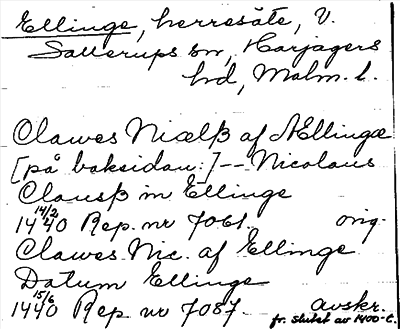 Ellinge, herresäte, V.
Sallerups sn, Harjagers
hd, Malm. l.
Clawes Niælß af Ællingæ
[på baksidan:]-- Nicolaus
Clausß in Ellinge
14/2
1440 Rep. nr 7061. orig.
Clawes Nic. af Ellinge
Datum Ellinge
15/6
1440 Rep nr 7087. avskr.
fr. slutet av 1400-t.